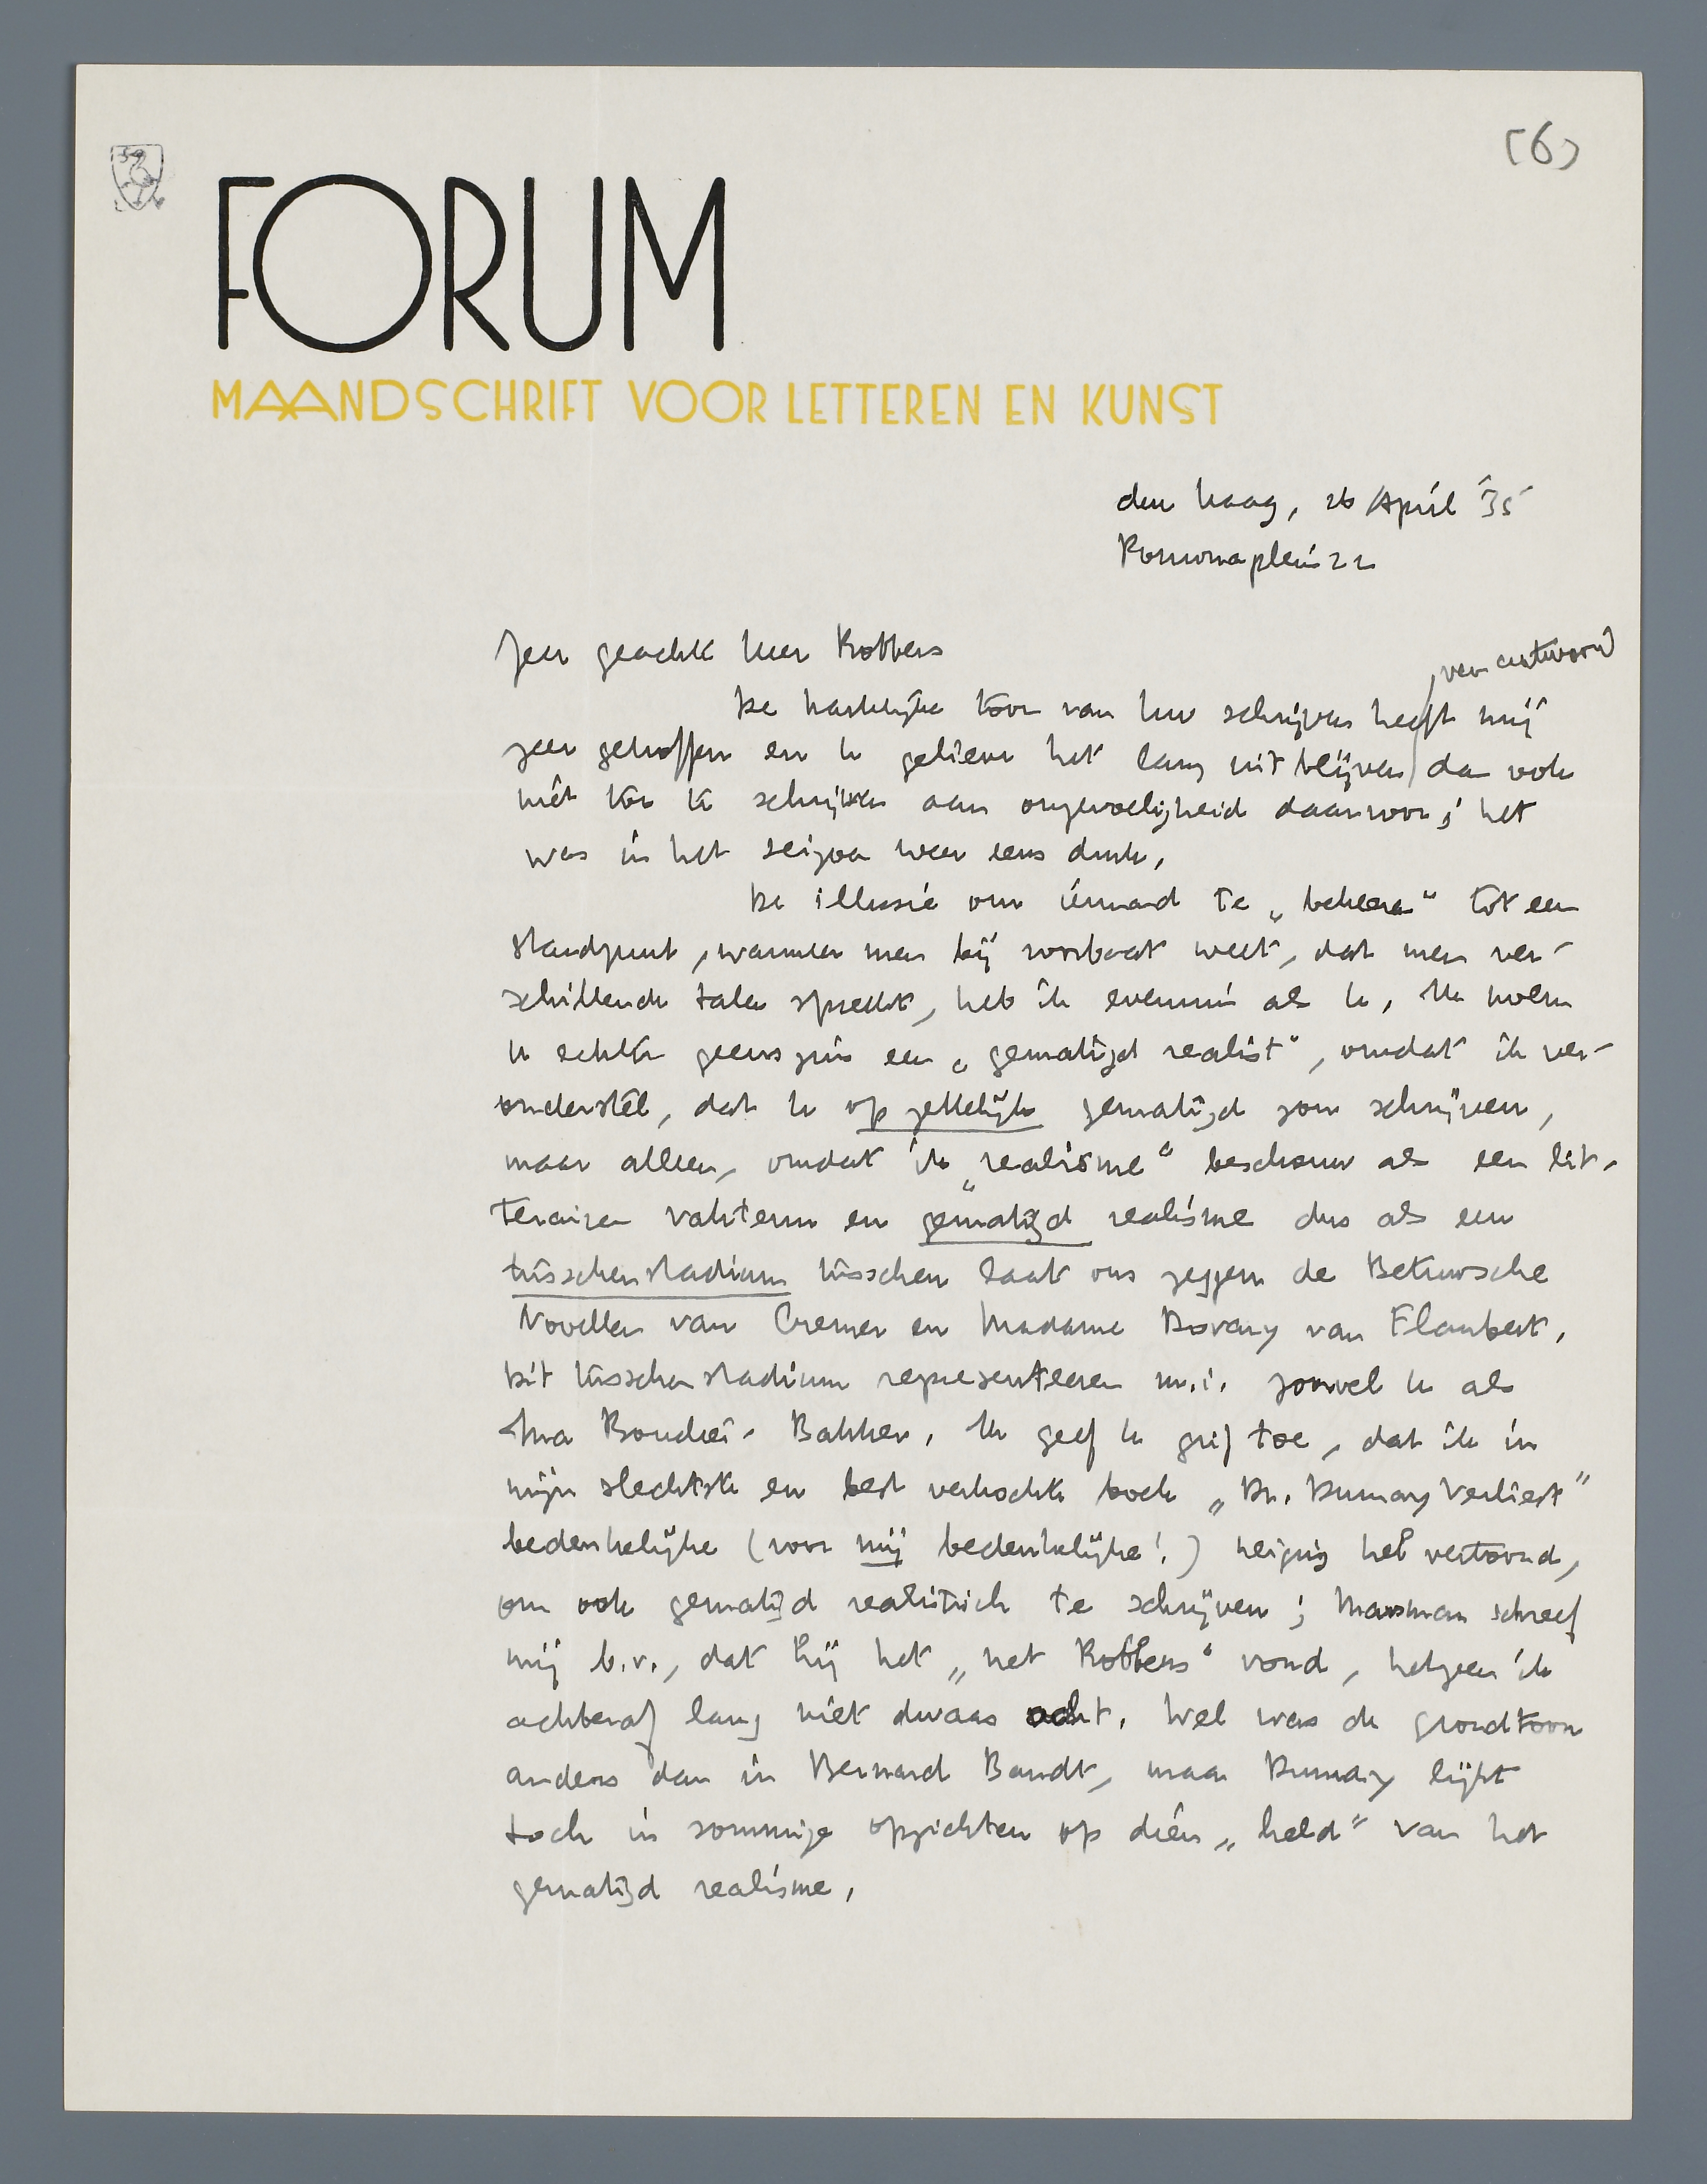 (6)
FORUM
MAANDSCHRIFT VOOR LETTEREN EN KUNST
den Haag, 26 April '35
Pomonaplein 22
Zeer geachte Heer Robbers
van antwoord
De hartelijke toon van Uw schrijven heeft mij
zeer getroffen en U gelieve het lang uitblijven dan ook
niet toe te schrijven aan ongevoeligheid daarvoor; het
was in het seizoen weer eens druk.
De illusie om iemand te „bekeeren" tot een
standpunt, wanneer men bij voorbaat weet, dat men ver-
schillende talen spreekt, heb ik evenmin als U. Ik noem
U echter geenszins een „gematigd realist", omdat ik ver-
onderstel, dat U opzettelijk gematigd zou schrijven,
maar alleen, omdat ik „realisme" beschouw als een lit-
terairen vakterm en gematigd realisme dus als een
tusschenstadium tusschen laat ons zeggen de Betuwsche
Novellen van Cremer en Madame Bovary van Flaubert.
Dit tusschenstadium representeeren m.i. zoowel U als
Ina Boudier-Bakker. Ik geef U grif toe, dat ik in
mijn slechtste en best verkochte boek „Dr. Dumay Verliest"
bedenkelijke (voor mij bedenkelijke!) neiging heb vertoond,
om ook gematigd realistisch te schrijven; Marsman schreef
mij b.v., dat hij het „net Robbers" vond, hetgeen ik
achteraf lang niet dwaas acht. Wel was de grondtoon
anders dan in Bernard Bandt, maar Dumay lijkt
toch in sommige opzichten op dien „held" van het
gematigd realisme.